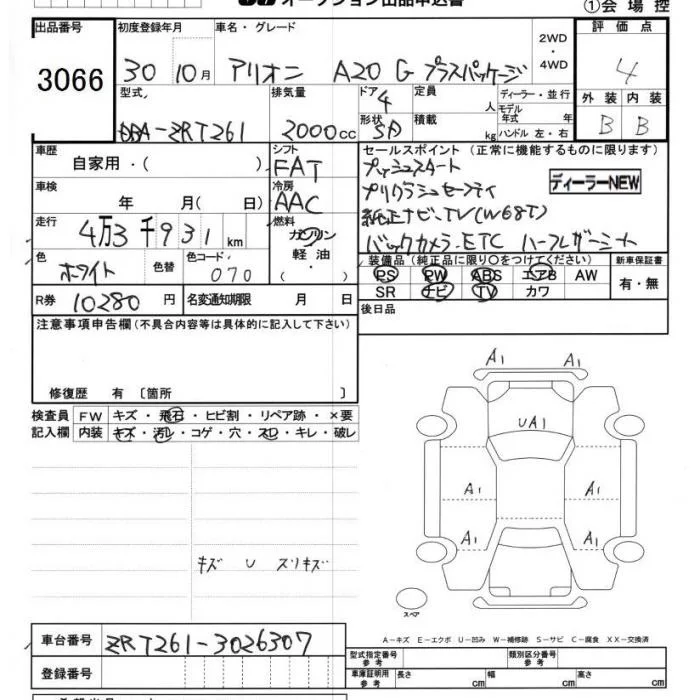 オークション出品申込書
①会場控
出品番号 初度登録年月 車名・グレード 2WD・4WD 評価点
3066 30 10月 アリオン A20 G プラスパッケージ 4
型式 排気量 ドア 4 定員 人 ディーラー・並行 外装 内装
DBA-ZRT261 2000cc 形状 SD 積載 kg モデル年式 年 ハンドル 左・右 B B
車歴 自家用・( ) シフト FAT セールスポイント (正常に機能するものに限ります)
プッシュスタート
車検 年 月( 日) 冷房 AAC プリクラッシュセーフティ ディーラーNEW
走行 4万3千931km 燃料 ガソリン・軽油・( ) 純正ナビ、TV(W68T)
バックカメラ、ETC ハーフレザーシート
色 ホワイト 色替 色コード 070 装備品 (純正品に限り○をつけてください) 新車保証書
PS PW ABS エアB AW 有・無
R券 10280円 名変通知期限 月 日 SR ナビ TV カワ
注意事項申告欄(不具合内容等は具体的に記入して下さい) 後日品
修復歴 有 〔箇所 〕
検査員 FW キズ・飛石・ヒビ割・リペア跡・×要
記入欄 内装 キズ・汚レ・コゲ・穴・スレ・キレ・破レ
A1 A1
UA1
A1 A1
A1 A1
キズ U スリキズ
スペア
A-キズ E-エクボ U-凹み W-補修跡 S-サビ C-腐食 XX-交換済
車台番号 ZRT261-3026307
型式指定番号 参考 類別区分番号 参考
登録番号 車庫証明用 参考 長さ cm 幅 cm 高さ cm